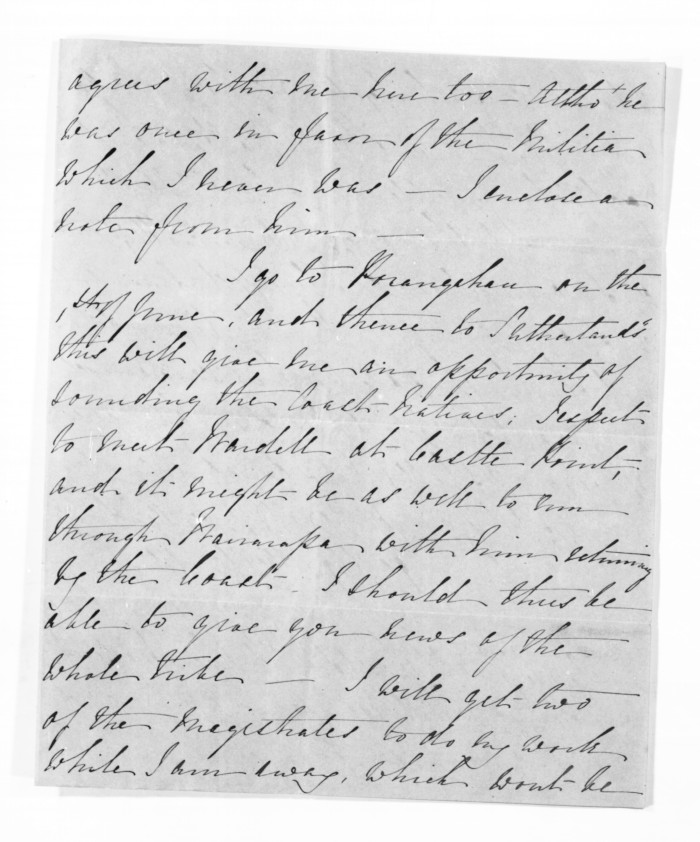 agrees with me here too - Altho' he
was once in favor of the Militia
which I never was - I enclose a
note from him -
I go to Porangahau on the
1st of June, and thence to Sutherlands
this will give me an opportunity of
sounding the Coast Natives; I expect
to meet Wardell at Castle Point,
and it might be as well to run
through Wairarapa with him returning
by the Coast - I should thus be
able to give you news of the
whole tribe - I will get two
of the Magistrates to do my work
while I am away, which wont be